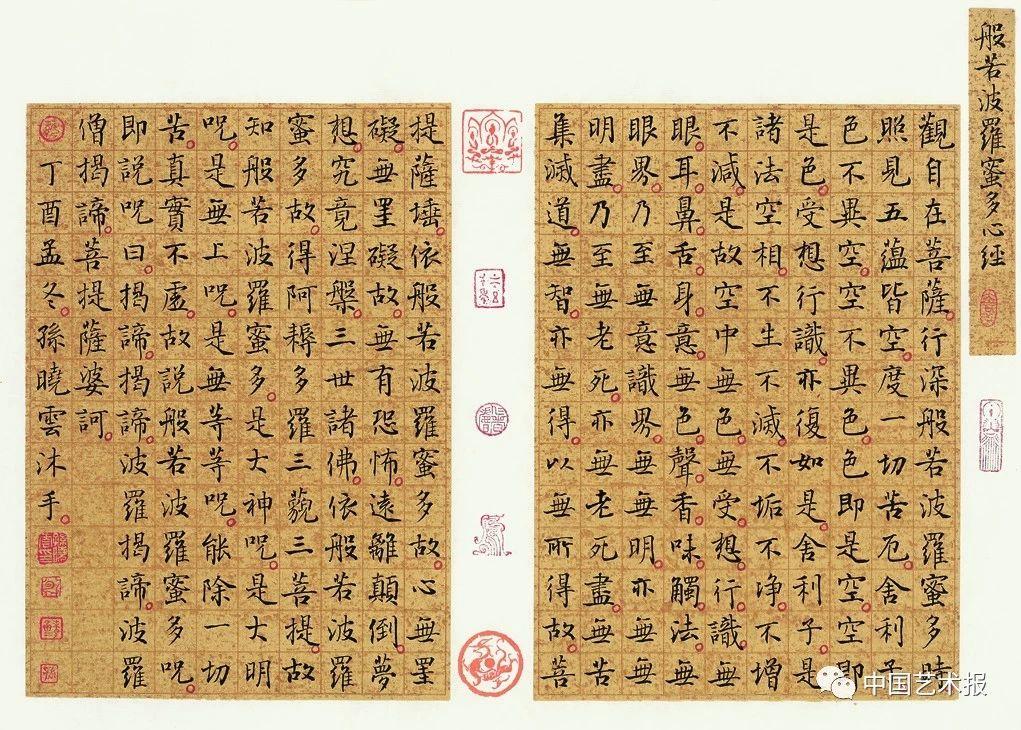 般若波羅蜜多心經
觀自在菩薩。行深般若波羅蜜多時
照見五蘊皆空。度一切苦厄。舍利子
色不異空。空不異色。色即是空。空即
是色。受想行識。亦復如是。舍利子。是
諸法空相。不生不滅。不垢不淨。不增
不減。是故空中無色。無受想行識。無
眼。耳鼻舌身意。無色聲香味觸法。無
眼界。乃至無意識界。無無明。亦無無
明盡。乃至無老死。亦無老死盡。無苦
集滅道。無智。亦無得。以無所得故。菩
提薩埵。依般若波羅蜜多故。心無罣
礙。無罣礙故。無有恐怖。遠離顛倒。夢
想。究竟涅槃。三世諸佛。依般若波羅
蜜多故。得阿耨多羅三藐三菩提。故
知般若波羅蜜多。是大神呪。是大明
呪。是無上呪。是無等等呪。能除一切
苦。真實不虛。故說般若波羅蜜多呪。
即說呪曰。揭諦。揭諦。波羅揭諦。波羅
僧揭諦。菩提薩婆訶。
丁酉孟冬。孫曉雲沐手。
中国艺术报